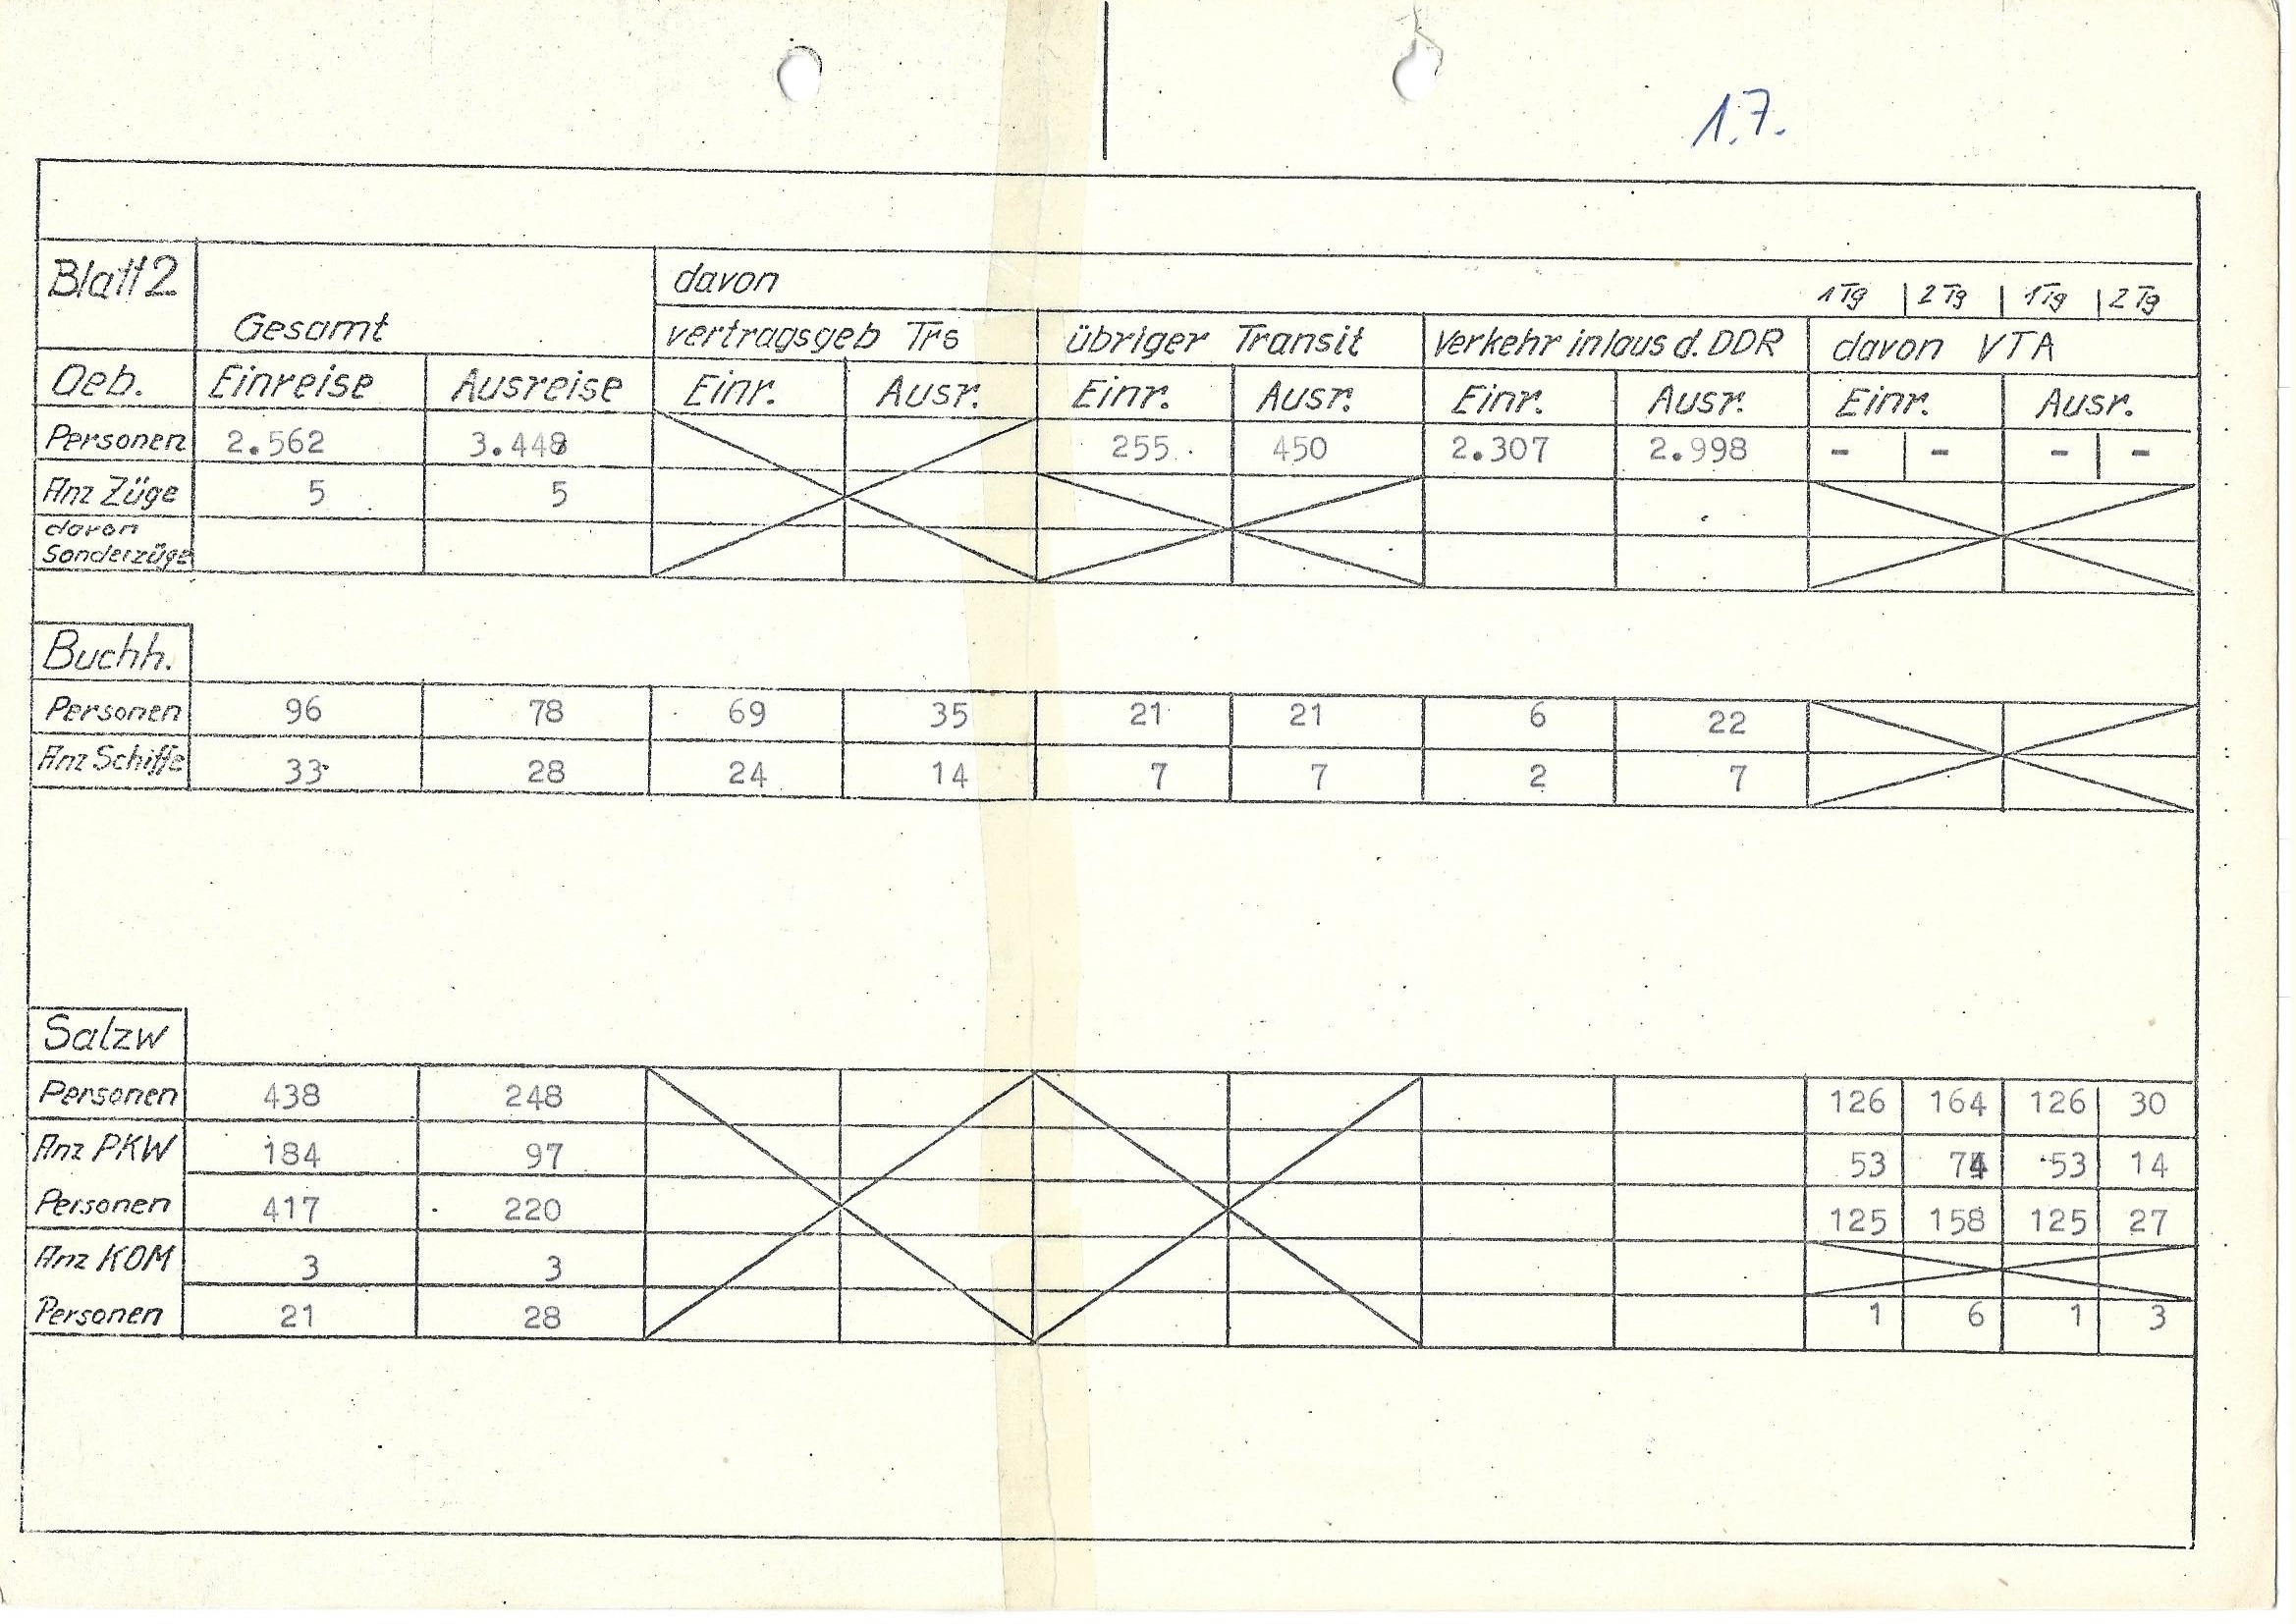 1.7.
Blatt 2 davon 1 Tg 2 Tg 1 Tg 2 Tg
Gesamt vertragsgeb Trs übriger Transit Verkehr in/aus d. DDR davon VTA
Oeb. Einreise Ausreise Einr. Ausr. Einr. Ausr. Einr. Ausr. Einr. Ausr.
Personen 2.562 3.448 255 450 2.307 2.998 - - - -
Anz Züge 5 5
davon
Sonderzüge
Buchh.
Personen 96 78 69 35 21 21 6 22
Anz Schiffe 33 28 24 14 7 7 2 7
Salzw
Personen 438 248 126 164 126 30
Anz PKW 184 97 53 74 53 14
Personen 417 220 125 158 125 27
Anz KOM 3 3
Personen 21 28 1 6 1 3